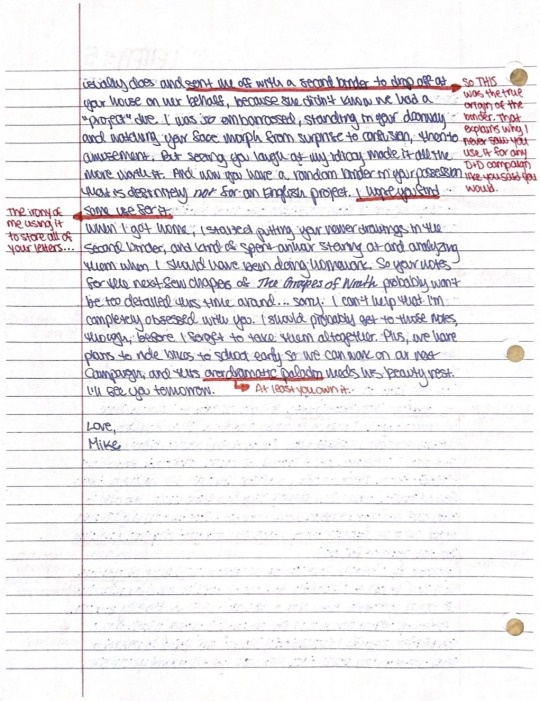 usually does and sent me off with a second binder to drop off at
your house on her behalf, because she didn't know we had a
"project" due. I was so embarrassed, standing in your doorway
and watching your face morph from surprise to confusion, then to
amusement. But seeing you laugh at my idiocy made it all the
more worth it. And now you have a random binder in your possession
that is definitely not for an English project. I hope you find
some use for it.
When I got home, I started putting your newer drawings in the
second binder, and kind of spent an hour staring at and analyzing
them when I should have been doing homework. So your notes
for the next few chapters of The Grapes of Wrath probably won't
be too detailed this time around... sorry. I can't help that I'm
completely obsessed with you. I should probably get to those notes,
though, before I forget to take them altogether. Plus, we have
plans to ride bikes to school early so we can work on our next
campaign, and this overdramatic paladin needs his beauty rest.
I'll see you tomorrow.
At least you own it.
Love,
Mike
So THIS
was the true
origin of the
binder. That
explains why I
never saw you
use it for any
D+D campaign
like you said you
would.
The irony of
me using it
to store all of
your letters...